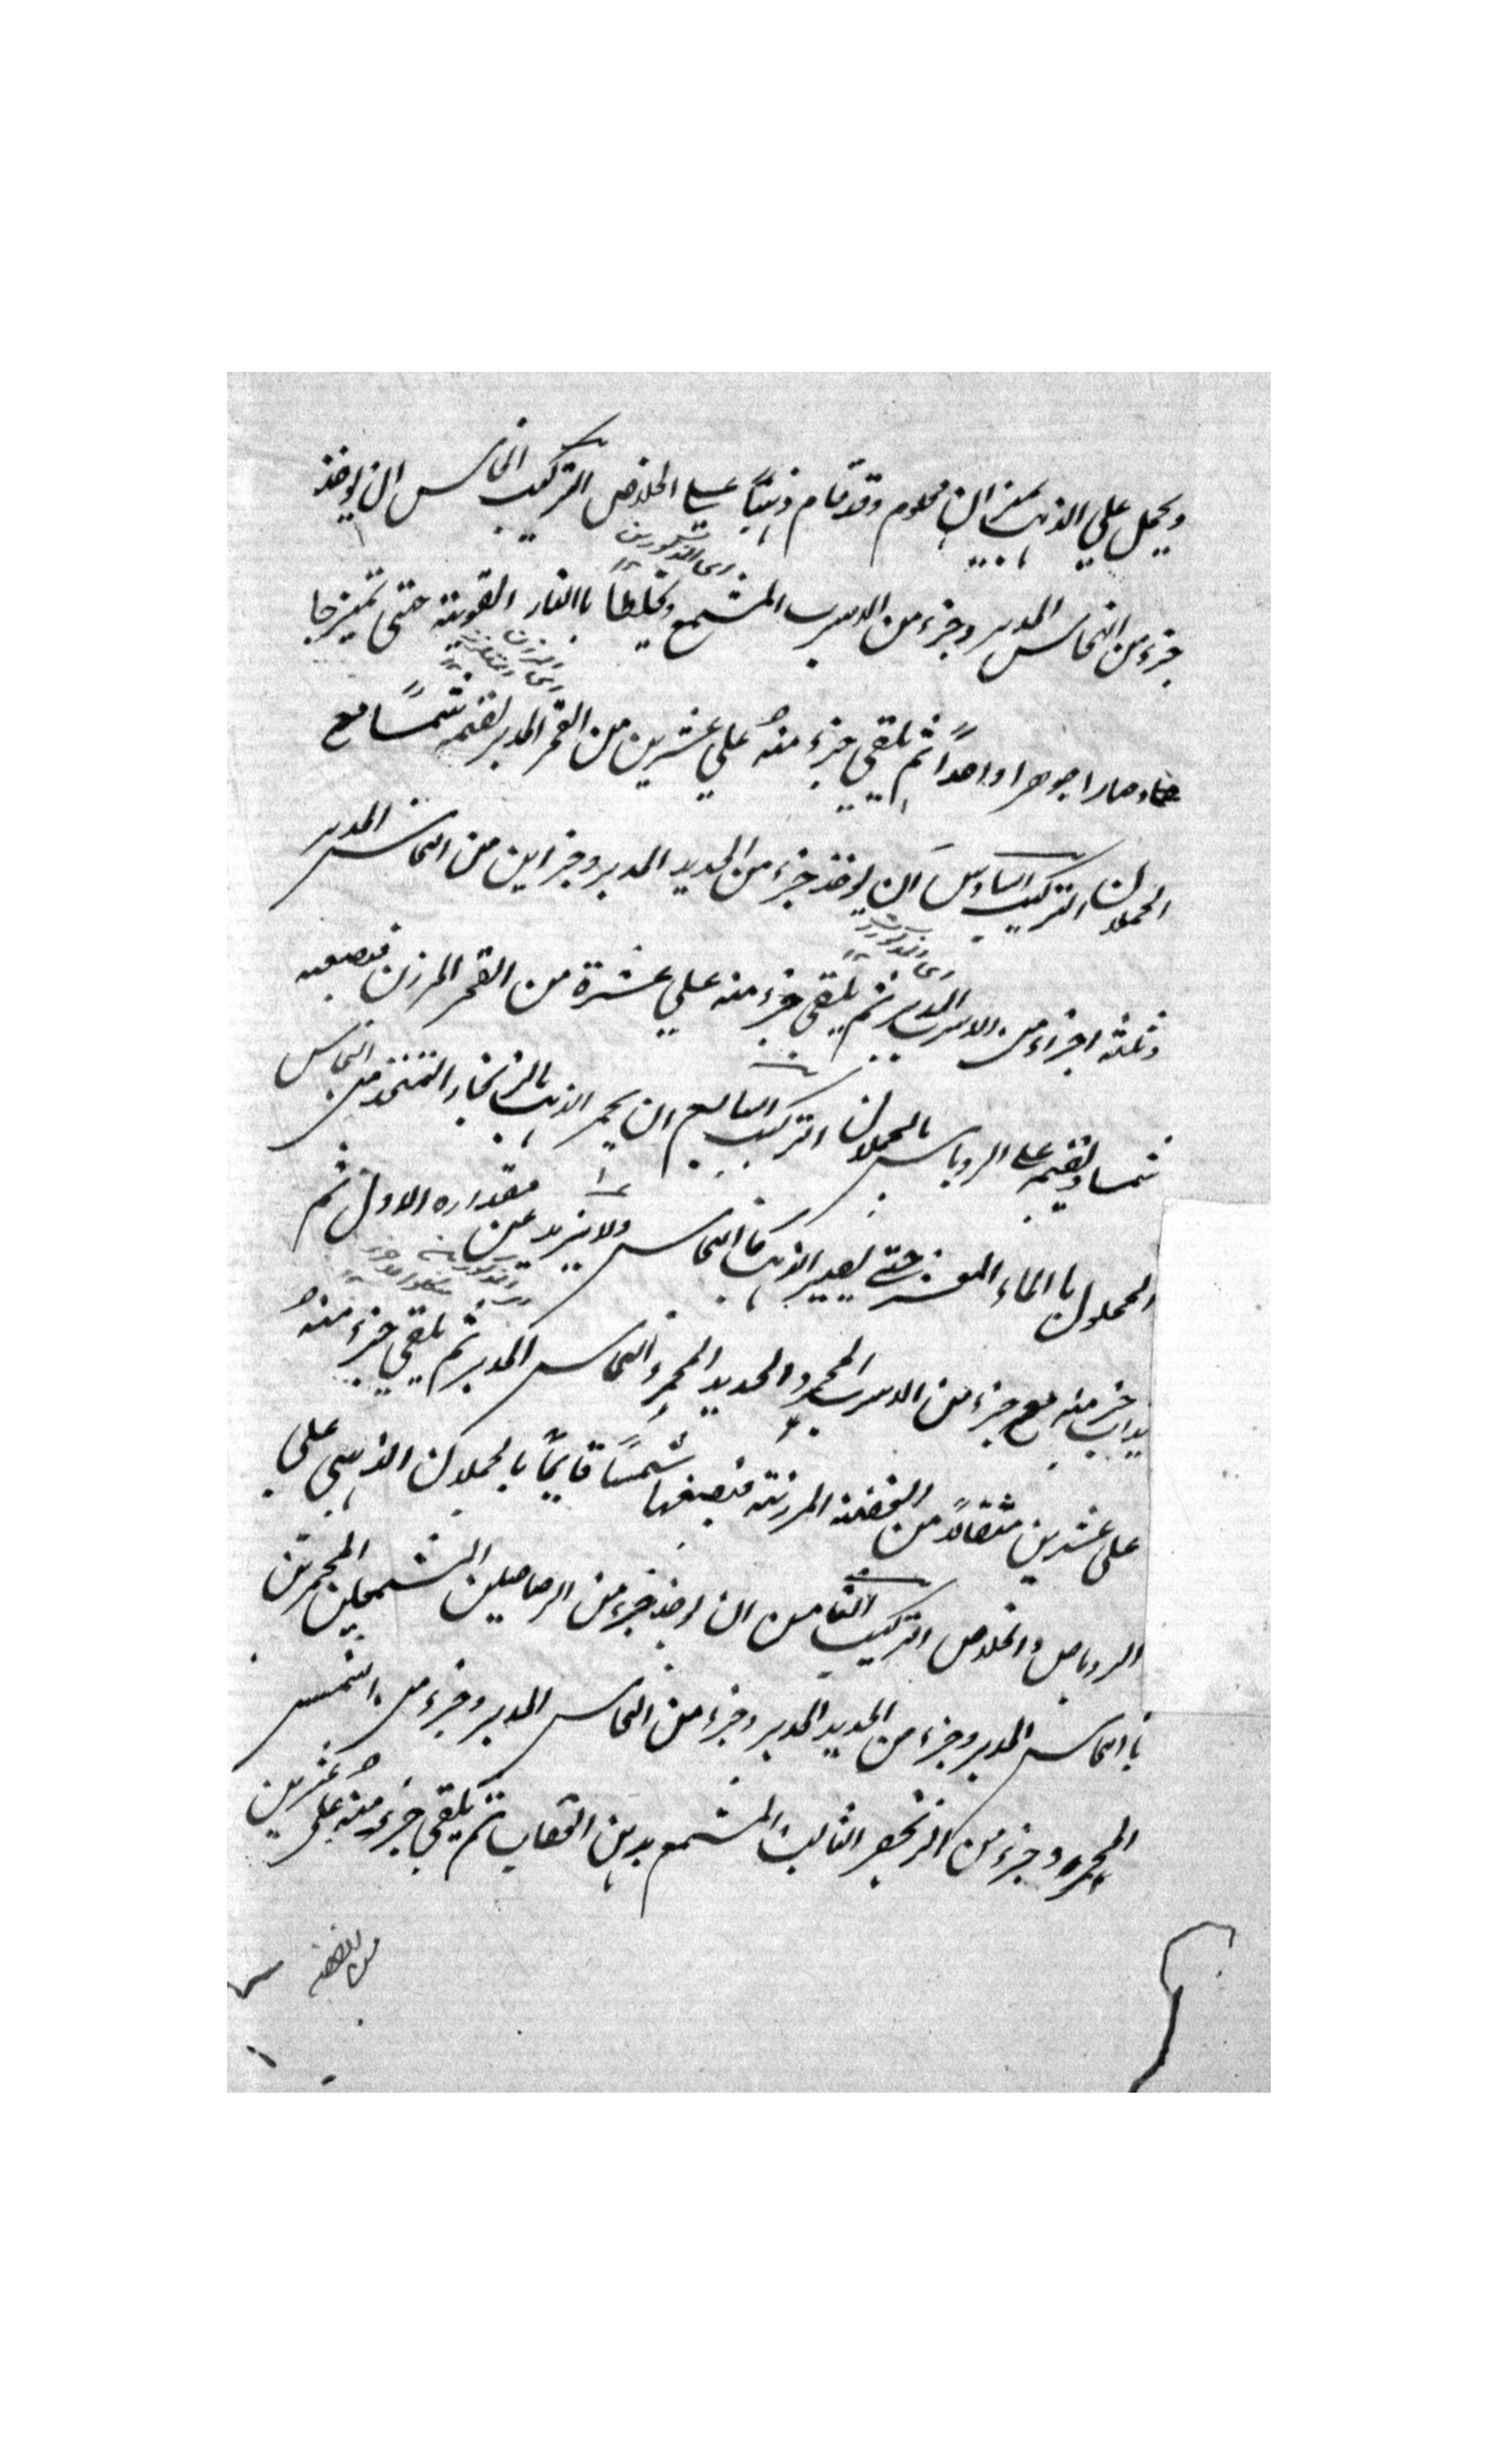 ويحمل علي الذهب بميزان معلوم وقد قام ذهبًا علي الخلاص التركيب الخامس ان يوخذ
اى المذكورين
جزء من النحاس المدبر وجزء من الاسرب المشمع ويخلطا باالنار القوية حتى تميزجا
وصارا جوهرا واحدًا ثم يلقى جزء منه علي عشرين من القمر المدبر يقيمه شمسًا مع
الحملان التركيب السادس ان يوخذ جزء من الحديد المدبر وجزاين من النحاس المدبر
اى المذكورات
وثلثه اجزاء من الاسرب المدبر ثم يلقى جزء منه علي عشرة من القمر المرزن فيصبغه
شمسا ويقيمه على الروباس بالحملان التركيب السابع ان يحمر الذهب بالزنجار المتخذ من النحاس
المحلول باالماء المعشر حتى يصير الذهب كاالنحاس ولا يزيد عن مقداره الاول ثم
يذاب جزء منه مع جزء من الاسرب المحمر والحديد المحمر والنحاس المدبر ثم يلقي جزء منه
على عشرين مثقالاً من الفضة المرزنة فيصبغها شمسًا قايمًا بالحملان الذهبي علي
الروباص والخلاص التركيب الثامن ان يوخذ جزء من الرصاصين المشمعين المحمرين
باالنحاس المدبر وجزء من الحديد المدبر وجزء من النحاس المدبر وجزء من الشمس
المحمرة وجزء من الزنجفر الثابت المشمع بدهن العقاب ثم يلقي جزء منه على عشرين
من الفضة